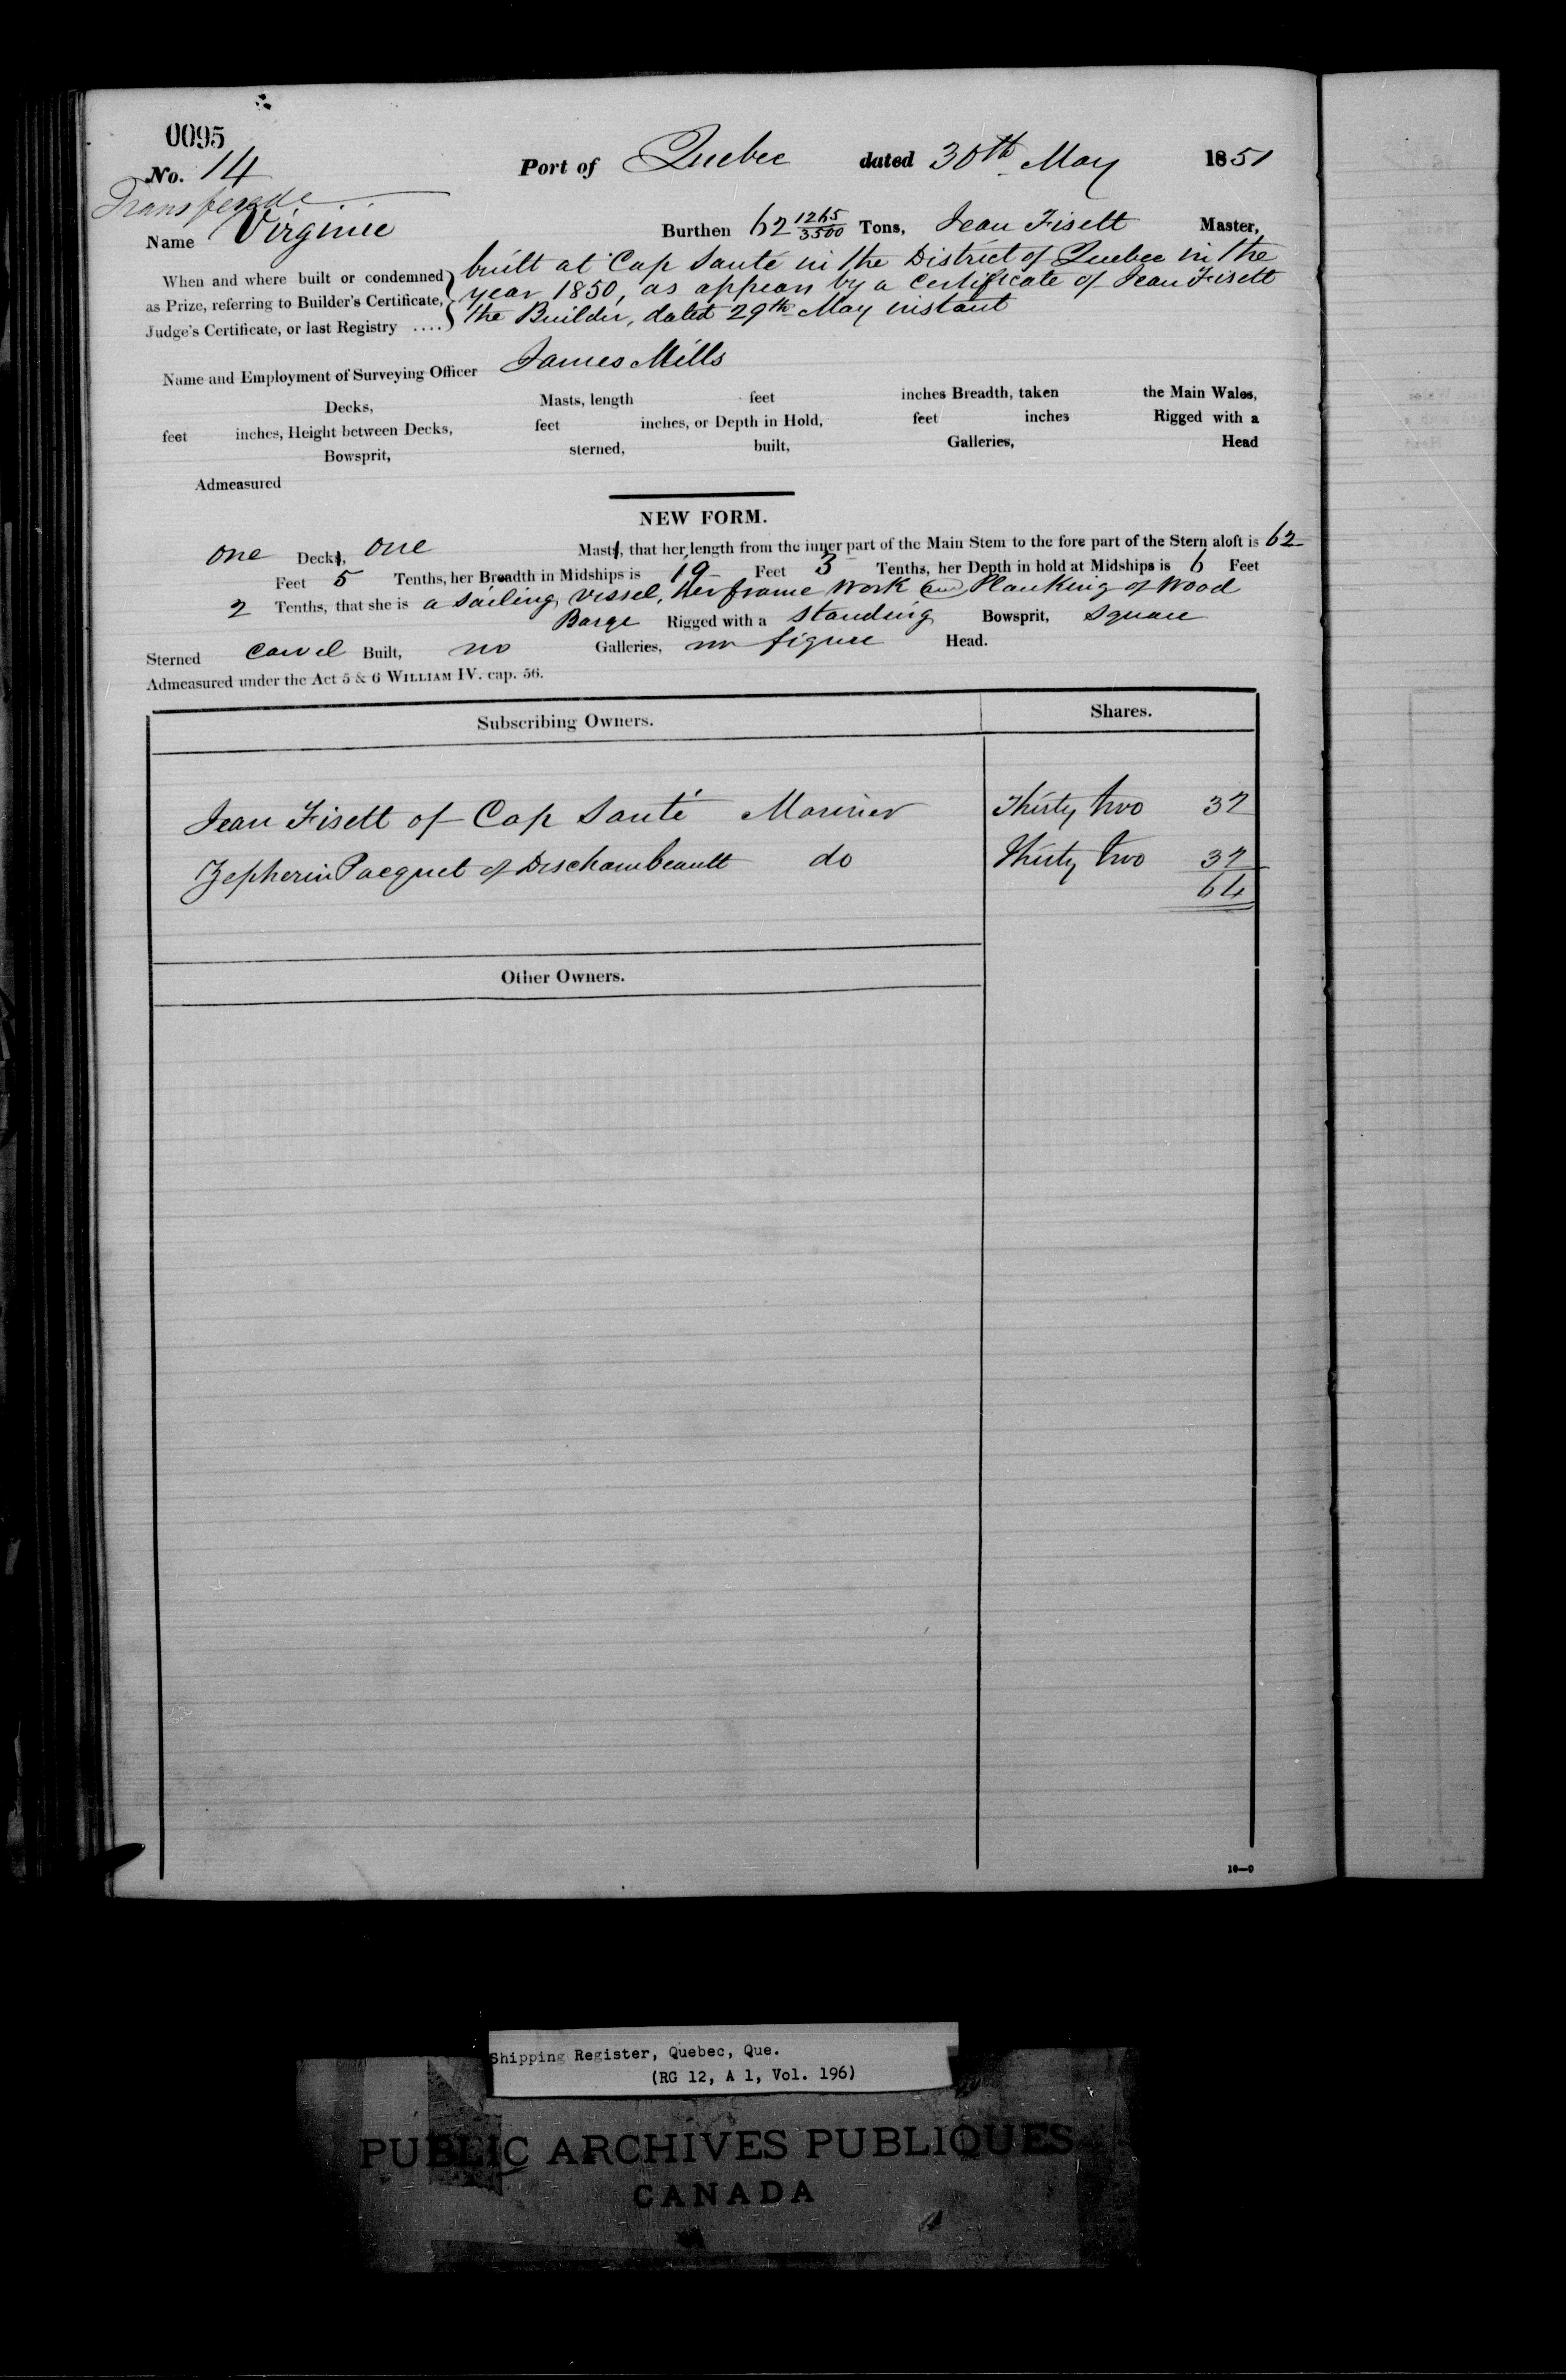 0095
No. 14 Port of Quebec dated 30th May 1851
Name Virginie Burthen 62 1265/3500 Tons, Jean Fisett Master,
When and where built or condemned
as Prize, referring to Builder's Certificate,
Judge's Certificate, or last Registry ....
built at Cap Santé in the District of Quebec in the
year 1850, as appears by a Certificate of Jean Fisett
the Builder, dated 29th May instant
Name and Employment of Surveying Officer James Mills
Decks, Masts, length feet inches Breadth, taken the Main Wales,
feet inches, Height between Decks, feet inches, or Depth in Hold, feet inches Rigged with a
Bowsprit, sterned, built, Galleries, Head
Admeasured
NEW FORM.
one Decks, one Masts, that her length from the inner part of the Main Stem to the fore part of the Stern aloft is 62
Feet 5 Tenths, her Breadth in Midships is 19 Feet 3 Tenths, her Depth in hold at Midships is 6 Feet
2 Tenths, that she is a sailing vessel, her frame work and Planking of Wood
Barge Rigged with a standing Bowsprit, Square
Sterned Carvel Built, no Galleries, no figure Head.
Admeasured under the Act 5 & 6 WILLIAM IV. cap. 56.
Subscribing Owners. Shares.
Jean Fisett of Cap Santé Mariner Thirty two 32
Zepherin Pacquet of Deschambeault do Thirty two 32
64
Other Owners.
10—9
Shipping Register, Quebec, Que.
(RG 12, A 1, Vol. 196)
PUBLIC ARCHIVES PUBLIQUES
CANADA